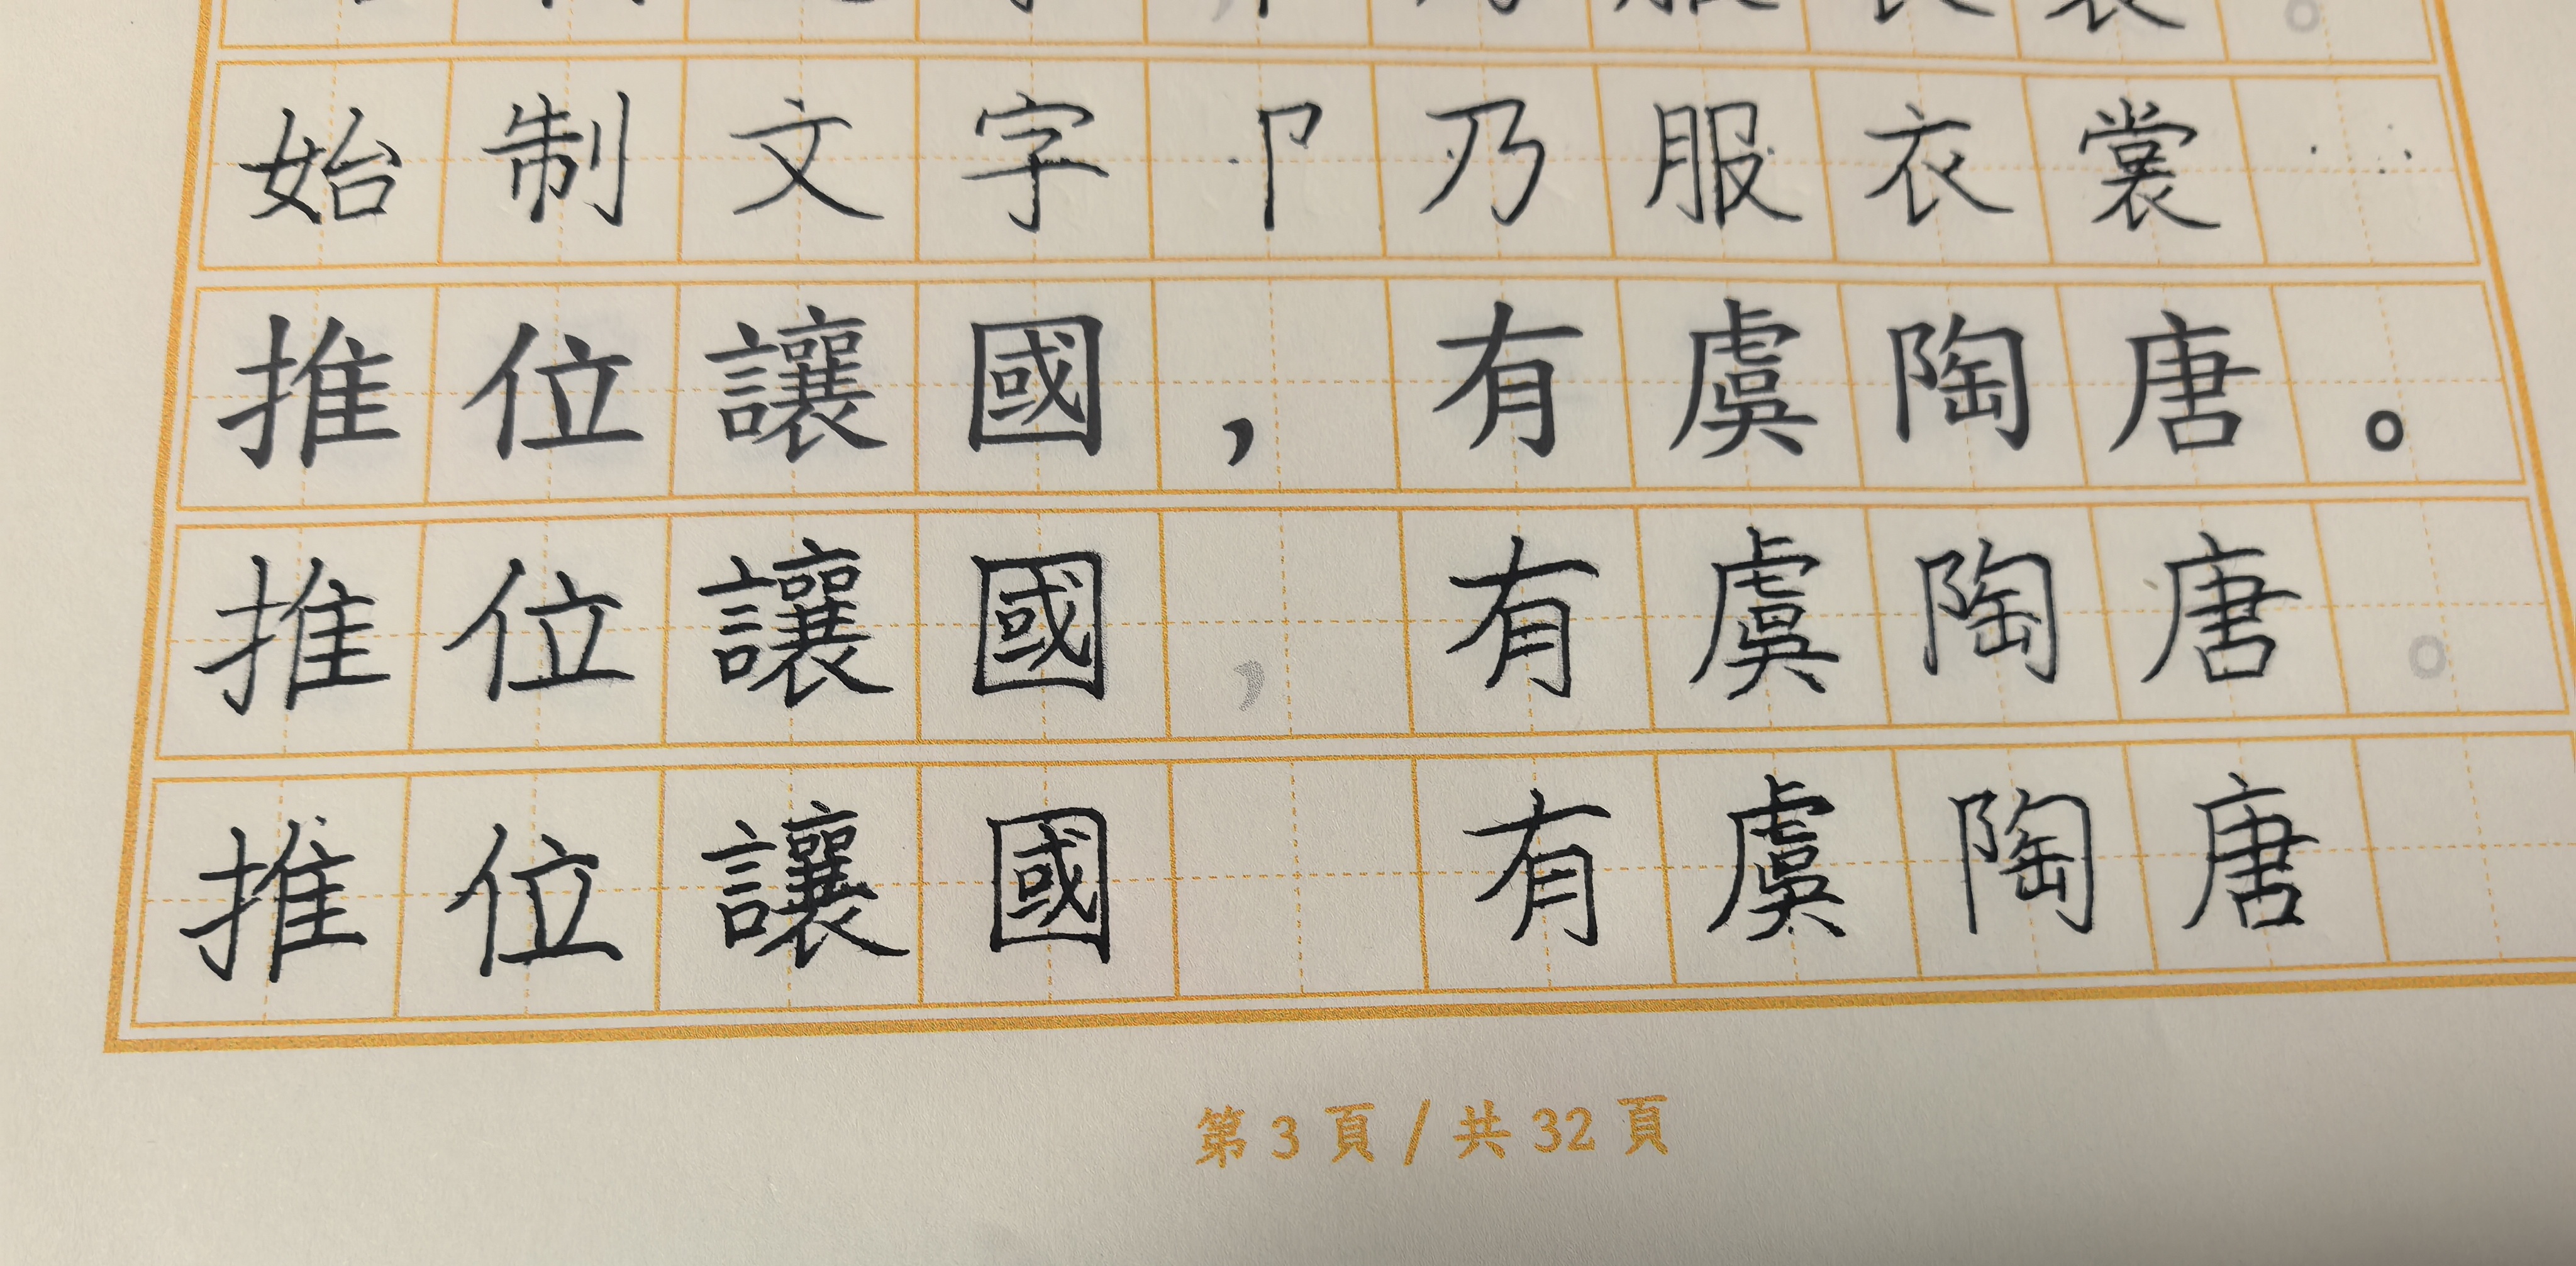 始制文字卩乃服衣裳
推位讓國，有虞陶唐。
推位讓國，有虞陶唐。
推位讓國 有虞陶唐
第3頁/共32頁